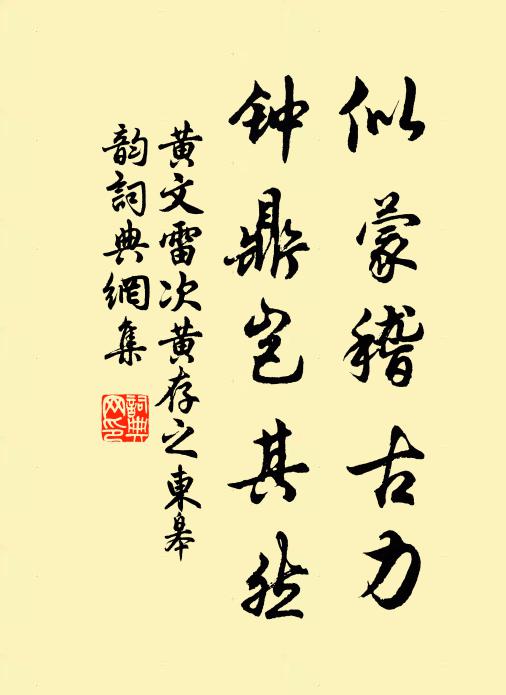 似蒙稽古力
钟鼎岂其然
黄文雷次黄存之東皋
韵詞典網集
詞典网印